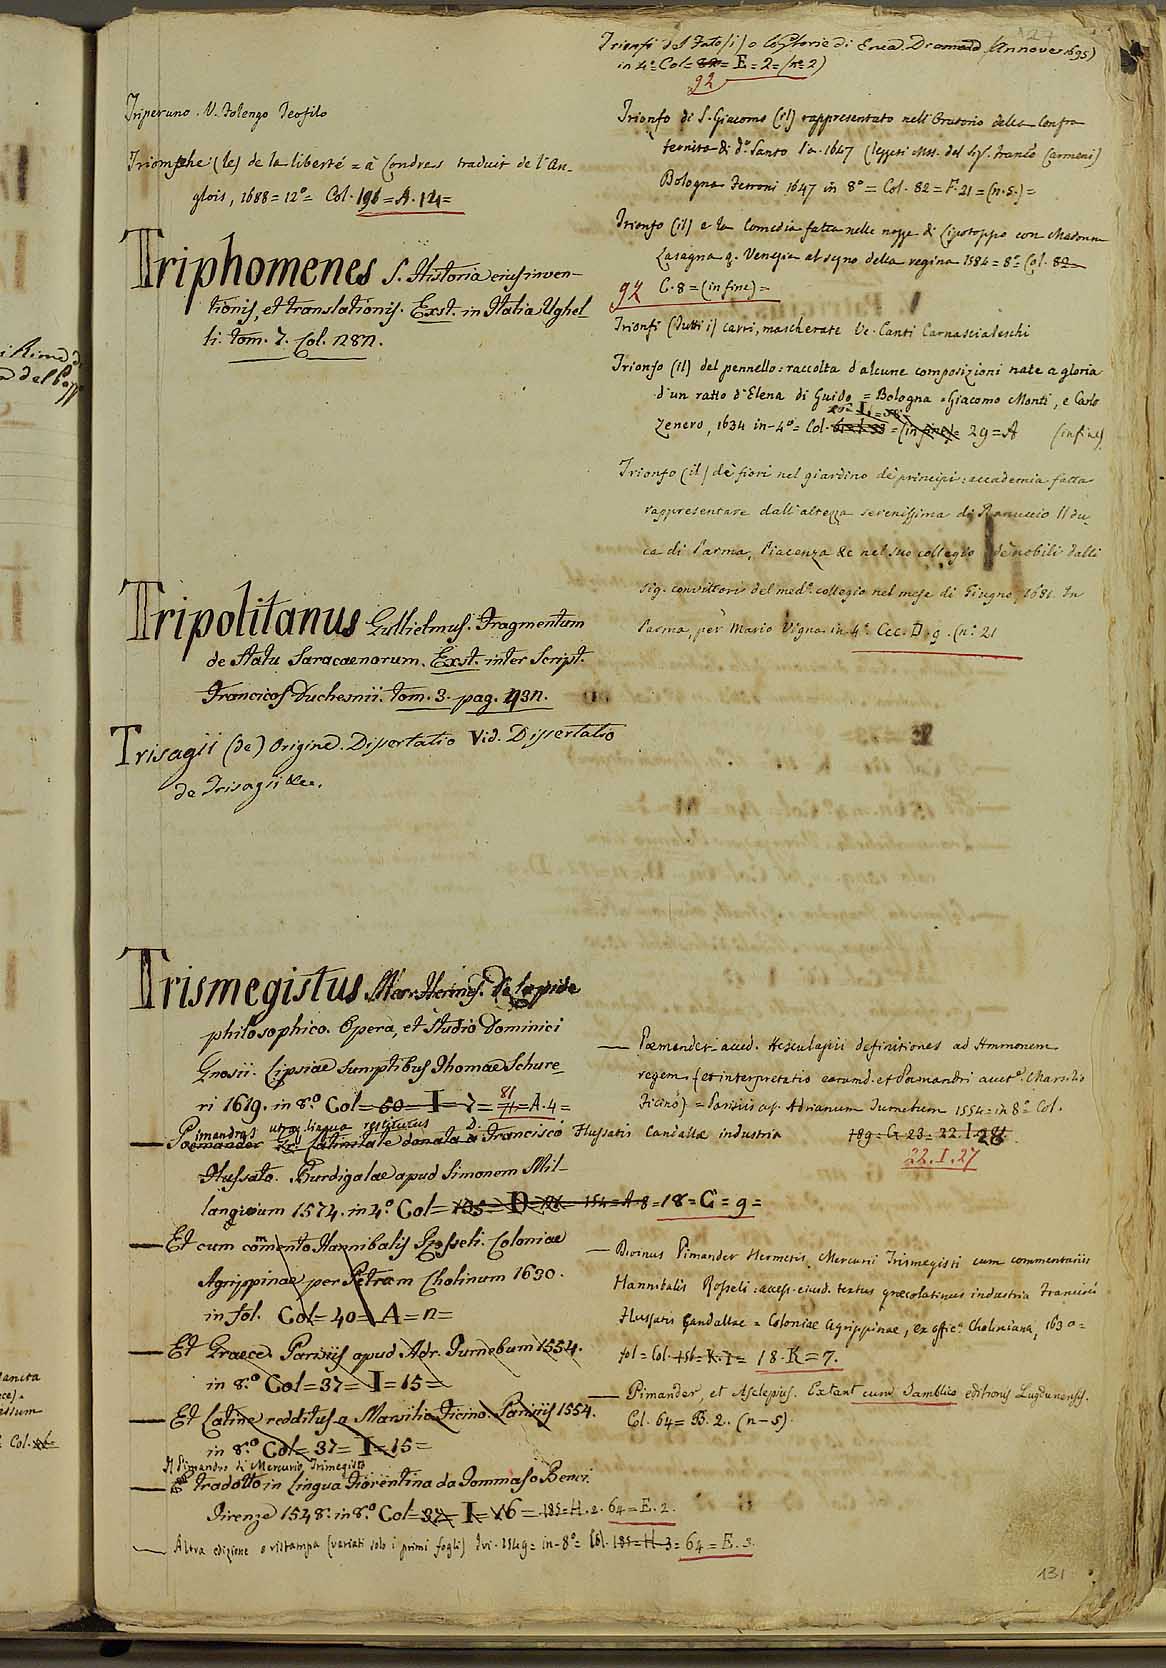 Triperuno. V. Folengo Teofilo
Triomphe (le) de la liberté = à Londres traduit de l'An-
glois, 1688 = 12º = Col. 196 = A. 14 =
Triphomenes S. Historia eius inven-
tionis, et translationis. Exst. in Italia Ughel-
li. tom. 7. Col.
Tripolitanus Gullielmus. Fragmentum
de statu Saracaenorum. Exst. inter Script.
Francicos Duchesnii. tom. 3. pag.
Trisagii (de) Origine. Dissertatio Vid. Dissertatio
de Trisagii &c.
Trismegistus Mer. Hermes. De Lapide
philosophico. Opera, et Studio Dominici
Gnosii. Lipsiae sumptibus Thomae Schure-
ri 1619. in 8.º Col = 60 = I = 7 = 81 = A. 4 =
Pimandras utraq. lingua restitutus D.
— Poemander Latinitate donata a Francisco Flussatis Candallæ industria
Flussato. Burdigalae apud Simonem Mil-
langium 1574. in 4.º Col = 105 = D = 154 = A 8 = 18 = C = 9 =
— Et cum comento Hannibalis Rosseli. Coloniae
Agrippinae per Petram Cholinum 1630.
in fol. Col = 40 = A = n =
— Et Graece. Parisiis apud Adr. Turnebum 1554.
in 8.º Col = 37 = I = 15 =
— Et Latine redditus a Marsilio Ficino. Parisiis 1554.
in 8.º Col = 37 = I = 15 =
Il Pimandro di Mercurio Trimegisto
— Et tradotto in Lingua Fiorentina da Tommaso Benci.
Firenze 1548. in 8.º Col = 37 = I = 16 = 185 = H. 2. 64 = E. 2.
— Altra edizione o ristampa (variati solo i primi fogli) Ivi. 1549 = in-8º = Col. 185 = H 3 = 64 = E. 3.
Trionfi del Fato (i) o le glorie di Enea Dramma (Annover 1695)
in 4º = Col = 82 = E = 2 = (nº 2)
92
Trionfo di S. Giacomo (il) rappresentato nell'Oratorio della Confra
ternita di dº Santo l'a. 1647
Bologna Ferroni 1647 in 8º = Col. 82 = F. 21 = (n. 5.) =
Trionfo (il) e la Comedia fatta nelle nozze di Lipotoppo con Madonna
Lasagna &. Venezia al segno della regina 1584 = 8º = Col. 82
92 C. 8 = (in fine) =
Trionfi (Tutti i) carri, mascherate Ve. Canti Carnascialeschi
Trionfo (il) del pennello: raccolta d'alcune composizioni nate a gloria
d'un ratto d'Elena di Guido = Bologna = Giacomo Monti, e Carlo
Zenero, 1634 in-4º = Col. = (in fine) = 29 = A (in fine)
Trionfo (il) de' fiori nel giardino de' principi: accademia fatta
rappresentare dall'altezza serenissima di Ranuccio II du-
ca di Parma, Piacenza &c nel suo collegio de' nobili dalli
sig. convittori del medº. collegio nel mese di Giugno, 1681. In
Parma, per Mario Vigna in 4º. Ccc. D. 9. (n. 21
— Pœmander acced. Aesculapii definitiones ad Ammonem
regem (et interpretatio earumd. et Poemandri auctº. Marsilio
Ficino) = Parisiis ap. Adrianum Turnebum 1554 = in 8º Col.
189 = G 23 = 22. I. 28
22. I. 27
— Divinus Pimander Hermetis Mercurii Trismegisti cum commentariis
Hannibalis Rosseli: access. eiusd. textus græcolatinus industria Francisci
Flussatis Candallae = Coloniae Agrippinae, ex officª. Choliniana, 1630 =
fol = Col. = K. = 18. K = 7.
— Pimander, et Asclepius. Extant cum Iamblico editionis Lugdunensis.
Col. 64 = B. 2. (n-5)
131